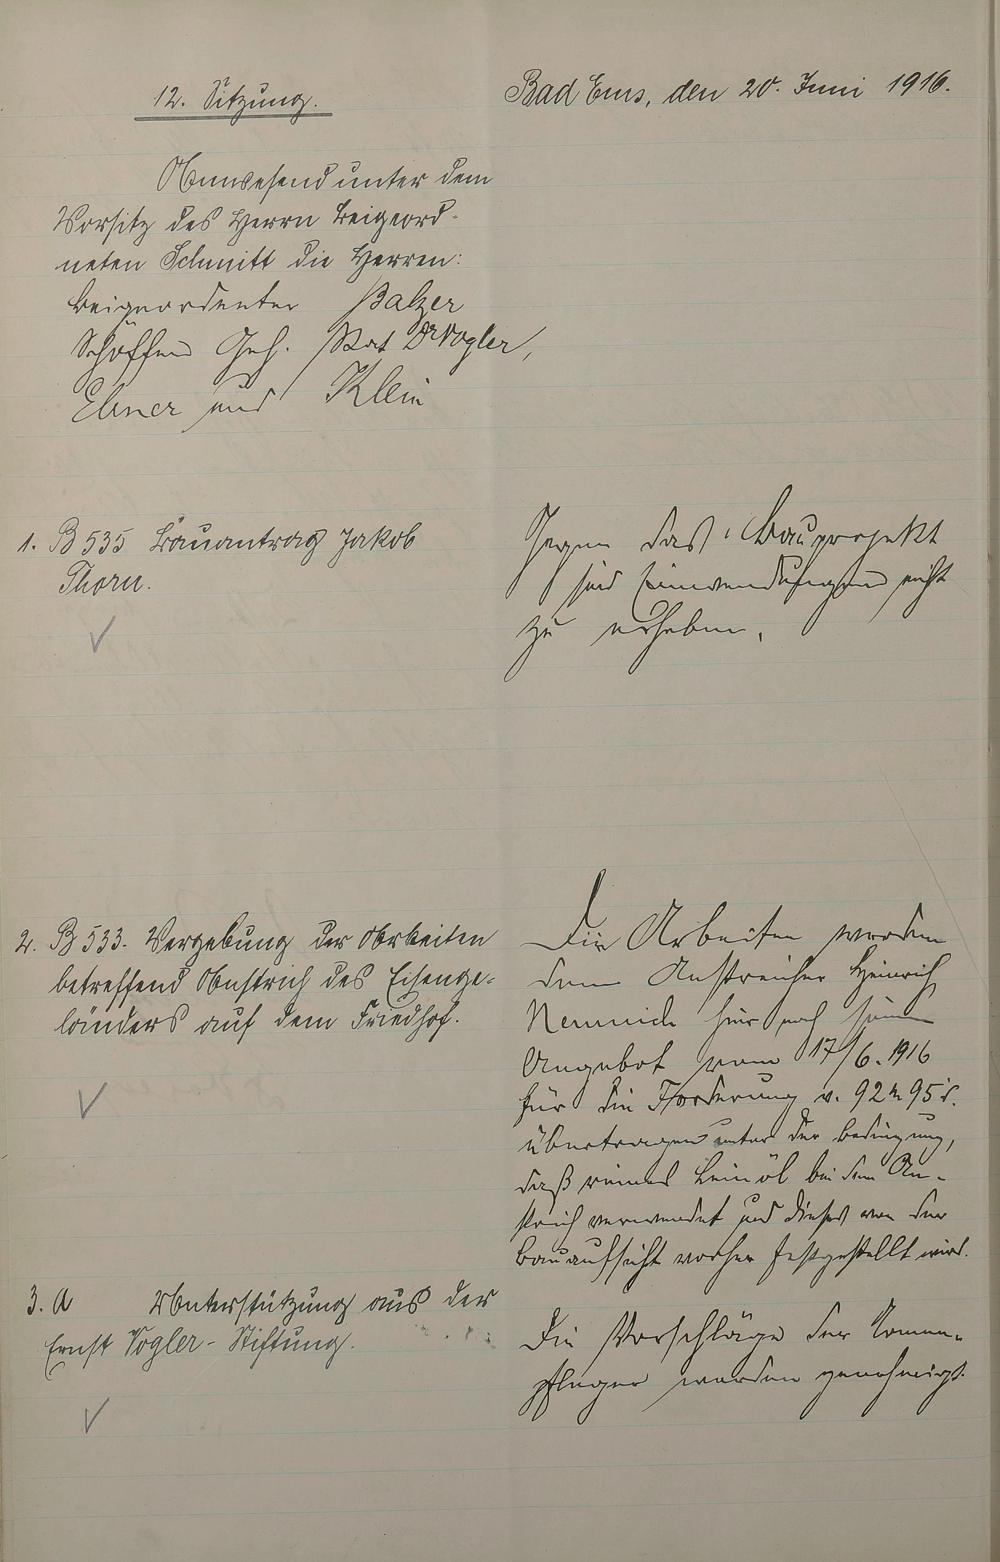 12. Sitzung.
Bad Ems, den 20. Juni 1916.
Anwesend unter dem
Vorsitz des Herrn Beigeord-
neten Schmitt die Herren:
Beigeordneter Balzer
Schöffen Geh. Rat Dr Vogler,
Ebner und Klein
1. B 535 Bauantrag Jakob
Thorn.
Gegen das Bauprojekt
sind Einwendungen nicht
zu erheben.
2. B 533. Vergebung der Arbeiten
betreffend Anstrich des Eisenge-
länders auf dem Friedhof.
Die Arbeiten werden
dem Anstreicher Heinrich
hier nach seinem
Angebot vom 17/6. 1916
für die Forderung v. 92 M 95 d.
übertragen unter der Bedingung,
daß reines Leinöl bei dem An-
strich verwendet und dieses von der
Bauaufsicht vorher festgestellt wird.
3. A Unterstützung aus der
Ernst Vogler-Stiftung.
Die Vorschläge der Armen-
pfleger werden genehmigt.